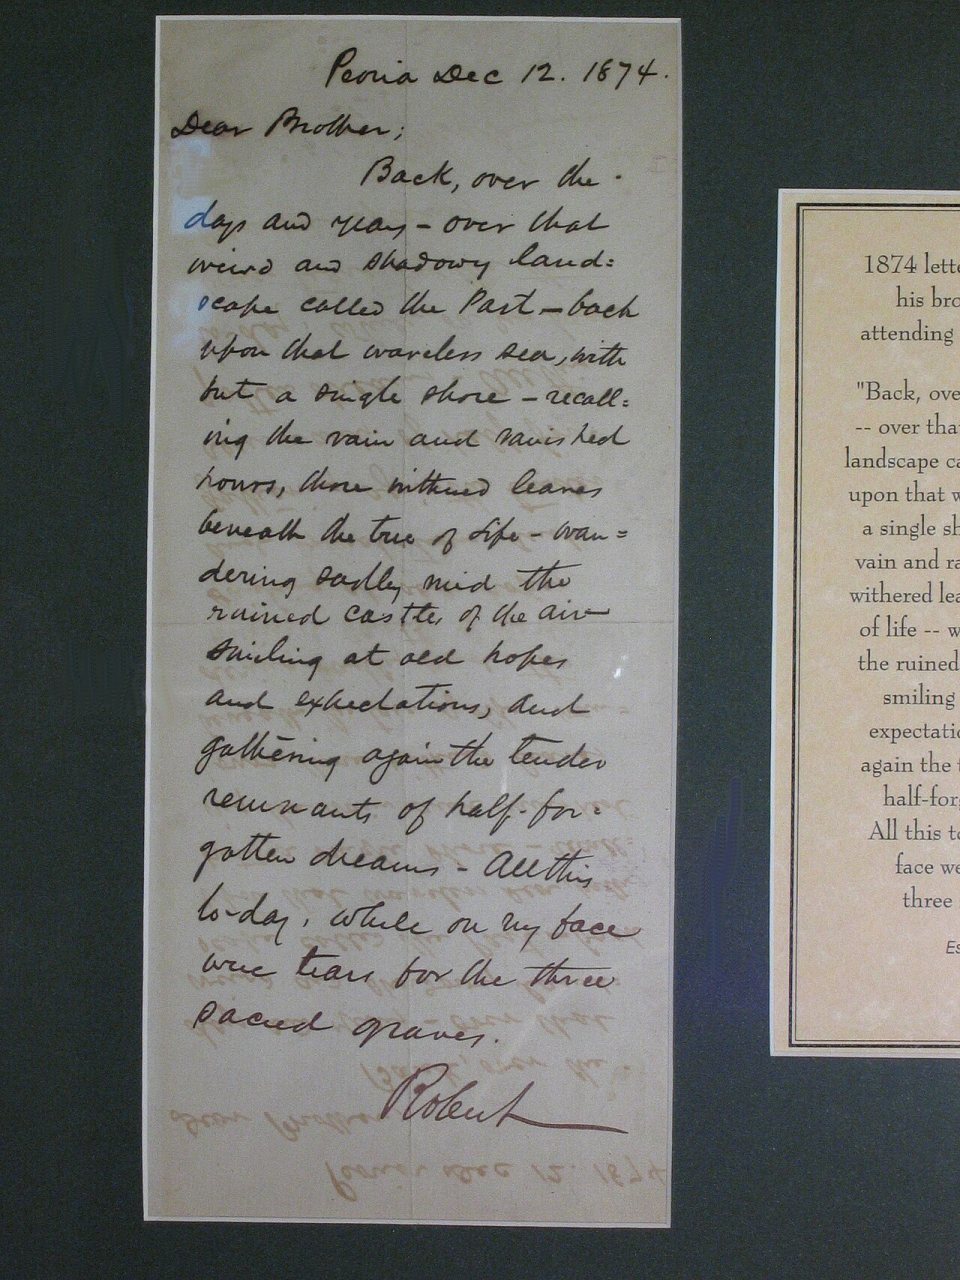 Peoria Dec 12. 1874.
Dear Brother;
Back, over the
days and years - over that
weird and shadowy land=
scape called the Past - back
upon that waveless sea, with
but a single shore - recall=
ing the vain and vanished
hours, those withered leaves
beneath the tree of life - wan=
dering sadly mid the
ruined castles of the air
smiling at old hopes
and expectations, and
gathering again the tender
remnants of half-for=
gotten dreams - All this
to-day, while on my face
were tears for the three
sacred graves.
Robert
1874 lette
his bro
attending
"Back, ove
-- over tha
landscape ca
upon that w
a single sh
vain and ra
withered lea
of life -- w
the ruined
smiling
expectatio
again the t
half-forg
All this to
face we
three
Es